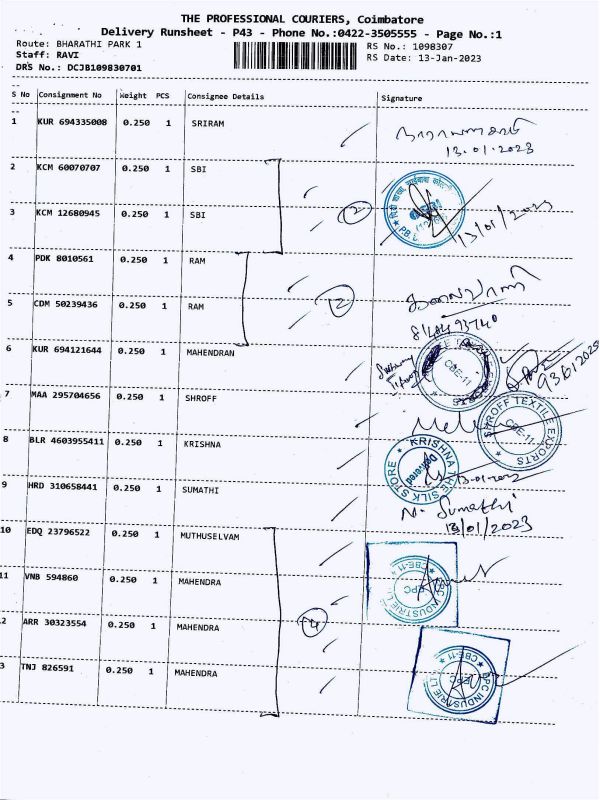 THE PROFESSIONAL COURIERS, Coimbatore
Delivery Runsheet - P43 - Phone No.:0422-3505555 - Page No.:1
Route: BHARATHI PARK 1 RS No.: 1098307
Staff: RAVI RS Date: 13-Jan-2023
DRS No.: DCJB109830701
S No Consignment No Weight PCS Consignee Details Signature
1 KUR 694335008 0.250 1 SRIRAM
13.01.2023
2 KCM 60070707 0.250 1 SBI
3 KCM 12680945 0.250 1 SBI 2
13/01/2023
4 PDK 8010561 0.250 1 RAM
5 CDM 50239436 0.250 1 RAM 2
6 KUR 694121644 0.250 1 MAHENDRAN
CBE-11
7 MAA 295704656 0.250 1 SHROFF
SHROFF TEXTILE EXPORTS
CBE-11
8 BLR 4603955411 0.250 1 KRISHNA
KRISHNA THE SILK STORE
Delivered
9 HRD 310658441 0.250 1 SUMATHI
N. Sumathi
13/01/2023
10 EDQ 23796522 0.250 1 MUTHUSELVAM
11 VNB 594860 0.250 1 MAHENDRA
CBE-11
2 ARR 30323554 0.250 1 MAHENDRA 4
3 TNJ 826591 0.250 1 MAHENDRA
CBE-11